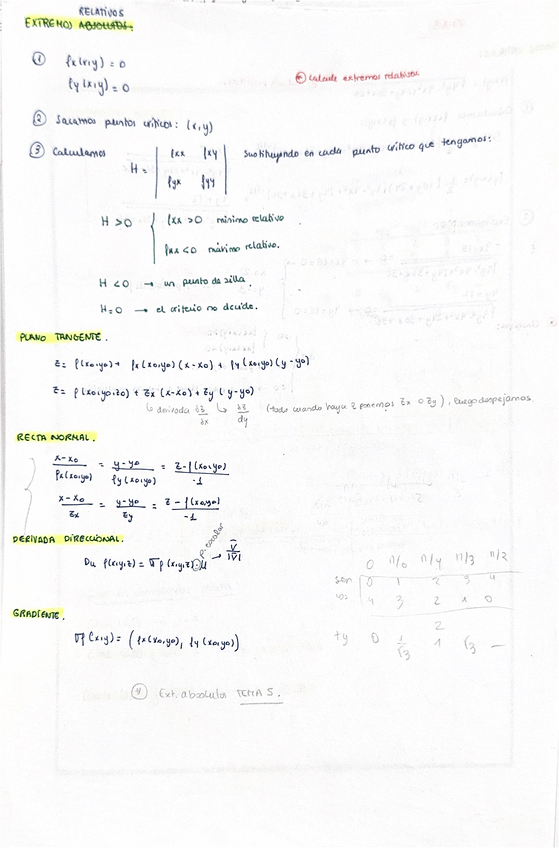 RELATIVOS
EXTREMOS ABSOLUTOS.
① fx(x,y) = 0
fy(x,y) = 0
* calcule extremos relativos
② Sacamos puntos críticos: (x,y)
③ Calculamos H = | fxx fxy | sustituyendo en cada punto crítico que tengamos:
| fyx fyy |
H > 0 { fxx > 0 mínimo relativo
fxx < 0 máximo relativo.
H < 0 → un punto de silla.
H = 0 → el criterio no decide.
PLANO TANGENTE.
z = f(x0,y0) + fx(x0,y0)(x-x0) + fy(x0,y0)(y-y0)
z = f(x0,y0,z0) + zx(x-x0) + zy(y-y0)
↳ derivada ∂z/∂x ↳ ∂z/dy (todo cuando haya z ponemos zx o zy), luego despejamos.
RECTA NORMAL.
x-x0/fx(x0,y0) = y-y0/fy(x0,y0) = z-f(x0,y0)/-1
x-x0/zx = y-y0/zy = z-f(x0,y0)/-1
DERIVADA DIRECCIONAL.
p. escalar
Du f(x,y,z) = ∇f(x,y,z)·u → v̄/|v̄|
0 π/6 π/4 π/3 π/2
sen 0 1 2 3 4
cos 4 3 2 1 0
2
tg 0 1/√3 1 √3 —
GRADIENTE.
∇f(x,y) = (fx(x0,y0), fy(x0,y0))
④ Ext. absolutos TEMA 5.